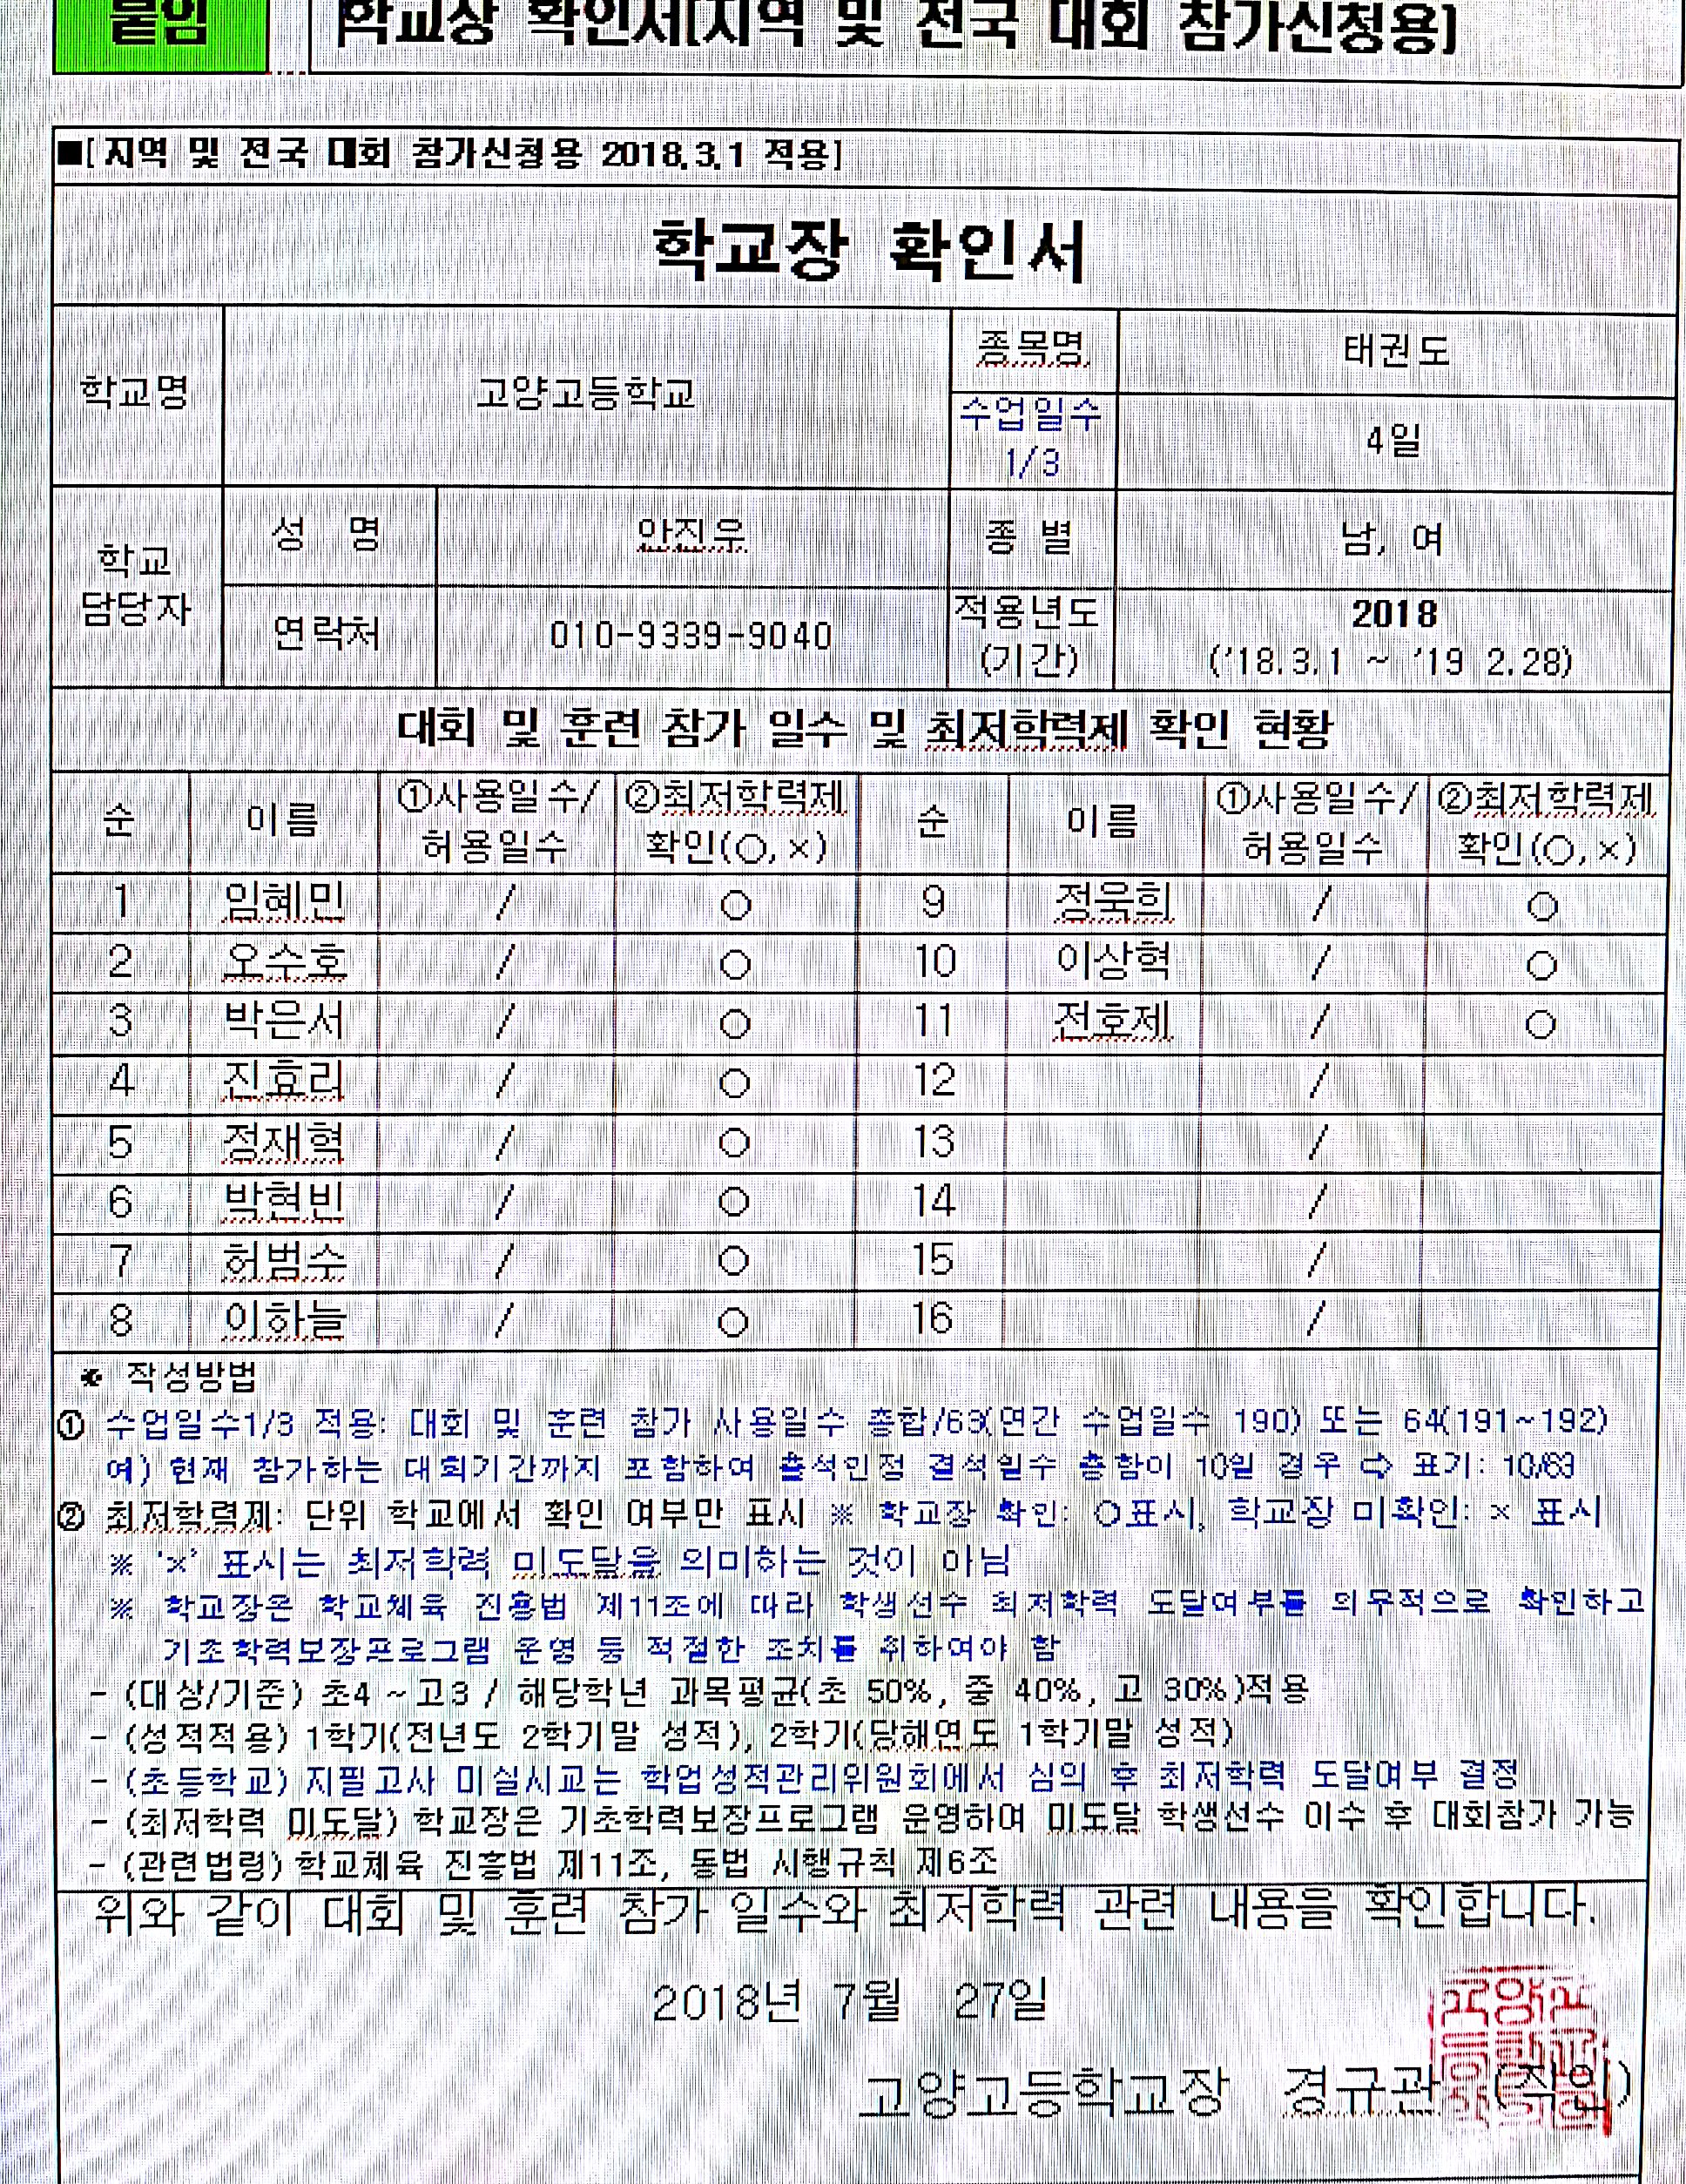 붙임 학교장 확인서[지역 및 전국 대회 참가신청용]
■[지역 및 전국 대회 참가신청용 2018.3.1 적용]
학교장 확인서
학교명 고양고등학교 종목명 태권도
수업일수 1/3 4일
학교 담당자 성 명 안진우 종 별 남, 여
연락처 010-9339-9040 적용년도 (기간) 2018 ('18.3.1 ~ '19 2.28)
대회 및 훈련 참가 일수 및 최저학력제 확인 현황
순 이름 ①사용일수/허용일수 ②최저학력제 확인(○,×) 순 이름 ①사용일수/허용일수 ②최저학력제 확인(○,×)
1 임혜민 / ○ 9 정욱희 / ○
2 오수호 / ○ 10 이상혁 / ○
3 박은서 / ○ 11 전호제 / ○
4 진효리 / ○ 12 /
5 정재혁 / ○ 13 /
6 박현빈 / ○ 14 /
7 허범수 / ○ 15 /
8 이하늘 / ○ 16 /
※ 작성방법
① 수업일수1/3 적용: 대회 및 훈련 참가 사용일수 총합/63(연간 수업일수 190) 또는 64(191~192)
예) 현재 참가하는 대회기간까지 포함하여 출석인정 결석일수 총합이 10일 경우 ⇨ 표기: 10/63
② 최저학력제: 단위 학교에서 확인 여부만 표시 ※ 학교장 확인: ○표시, 학교장 미확인: × 표시
※ '×' 표시는 최저학력 미도달을 의미하는 것이 아님
※ 학교장은 학교체육 진흥법 제11조에 따라 학생선수 최저학력 도달여부를 의무적으로 확인하고
기초학력보장프로그램 운영 등 적절한 조치를 취하여야 함
- (대상/기준) 초4 ~ 고3 / 해당학년 과목평균(초 50%, 중 40%, 고 30%)적용
- (성적적용) 1학기(전년도 2학기말 성적), 2학기(당해연도 1학기말 성적)
- (초등학교) 지필고사 미실시교는 학업성적관리위원회에서 심의 후 최저학력 도달여부 결정
- (최저학력 미도달) 학교장은 기초학력보장프로그램 운영하여 미도달 학생선수 이수 후 대회참가 가능
- (관련법령) 학교체육 진흥법 제11조, 동법 시행규칙 제6조
위와 같이 대회 및 훈련 참가 일수와 최저학력 관련 내용을 확인합니다.
2018년 7월 27일
고양고등학교장 경규관 (직인)